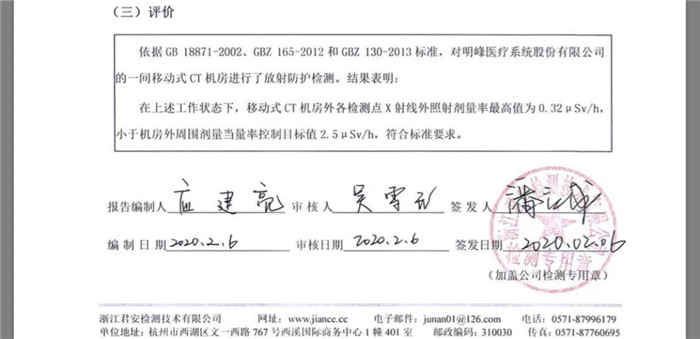 （三）评价
依据 GB 18871-2002、GBZ 165-2012 和 GBZ 130-2013 标准，对明峰医疗系统股份有限公司
的一间移动式 CT 机房进行了放射防护检测。结果表明：
在上述工作状态下，移动式 CT 机房外各检测点 X 射线外照射剂量率最高值为 0.32 μSv/h，
小于机房外周围剂量当量率控制目标值 2.5 μSv/h，符合标准要求。
报告编制人 建亮 审核人 吴雪 签发人
编制日期 2020.2.6 审核日期 2020.2.6 签发日期 2020.02.06
检测专用章
（加盖公司检测专用章）
浙江君安检测技术有限公司 网址：www.jiance.cc 电子邮件：junan01@126.com 电话：0571-87996179
单位地址：杭州市西湖区文一西路 767 号西溪国际商务中心 1 幢 401 室 邮政编码：310030 传真：0571-87760695